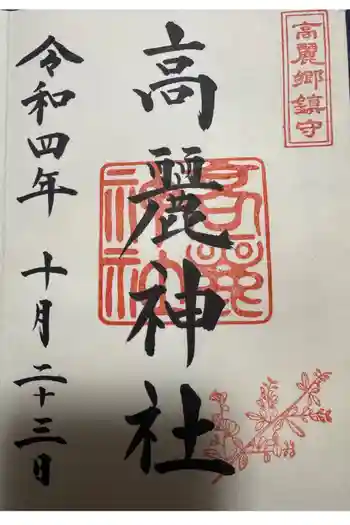 高麗郷鎮守
高麗神社
令和四年 十月二十三日